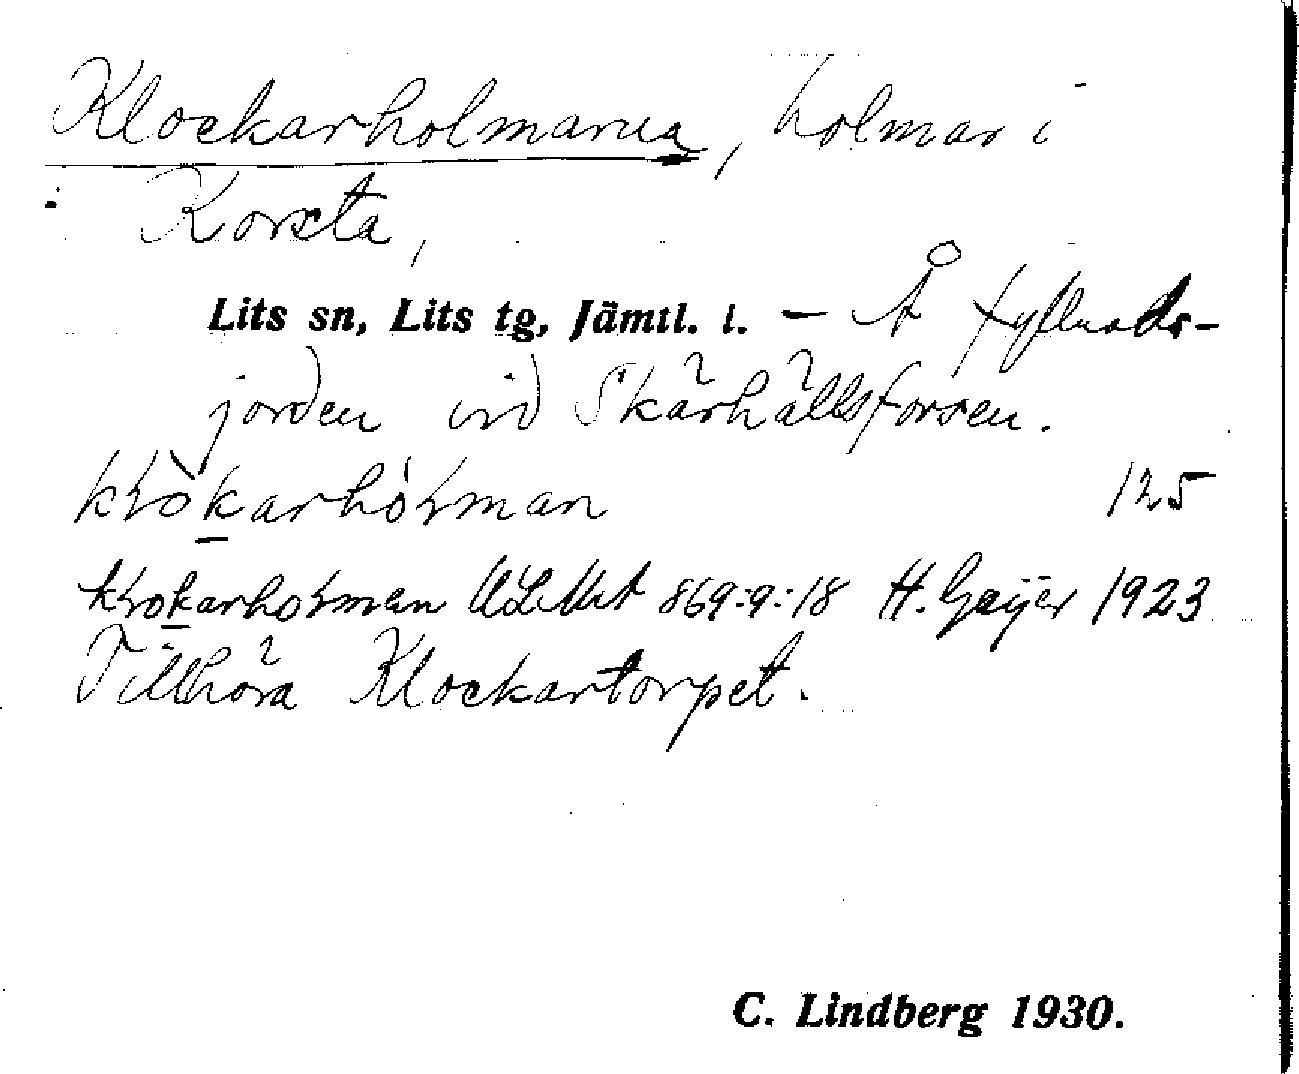 Klockarholmarna, holmar i
Korsta,
Lits sn, Lits tg, Jämtl. l. – Å fyllnads-
jorden vid Skärhällsforsen.
125
ULMA 869:9:18 H. Geijer 1923
Tillhöra Klockartorpet.
C. Lindberg 1930.